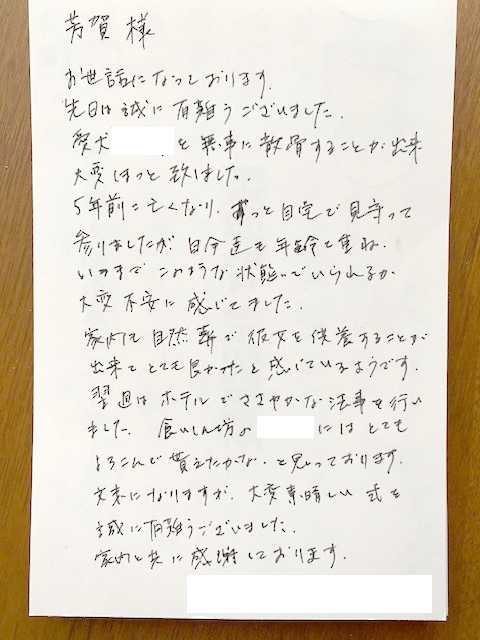 芳賀様
お世話になっております。
先日は誠に有難うございました。
愛犬 を無事に散骨することが出来
大変ほっと致しました。
5年前に亡くなり、ずっと自宅で見守って
参りましたが自分達も年齢を重ね、
いつまでこのような状態でいられるか
大変不安に感じてました。
家内も自然葬で彼女を供養することが
出来てとても良かったと感じているようです。
翌週はホテルでささやかな法事を行い
ました。食いしん坊の にはとても
よろこんで貰えたかな、と思っております。
文末になりますが、大変素晴しい式を
誠に有難うございました。
家内と共に感謝しております。